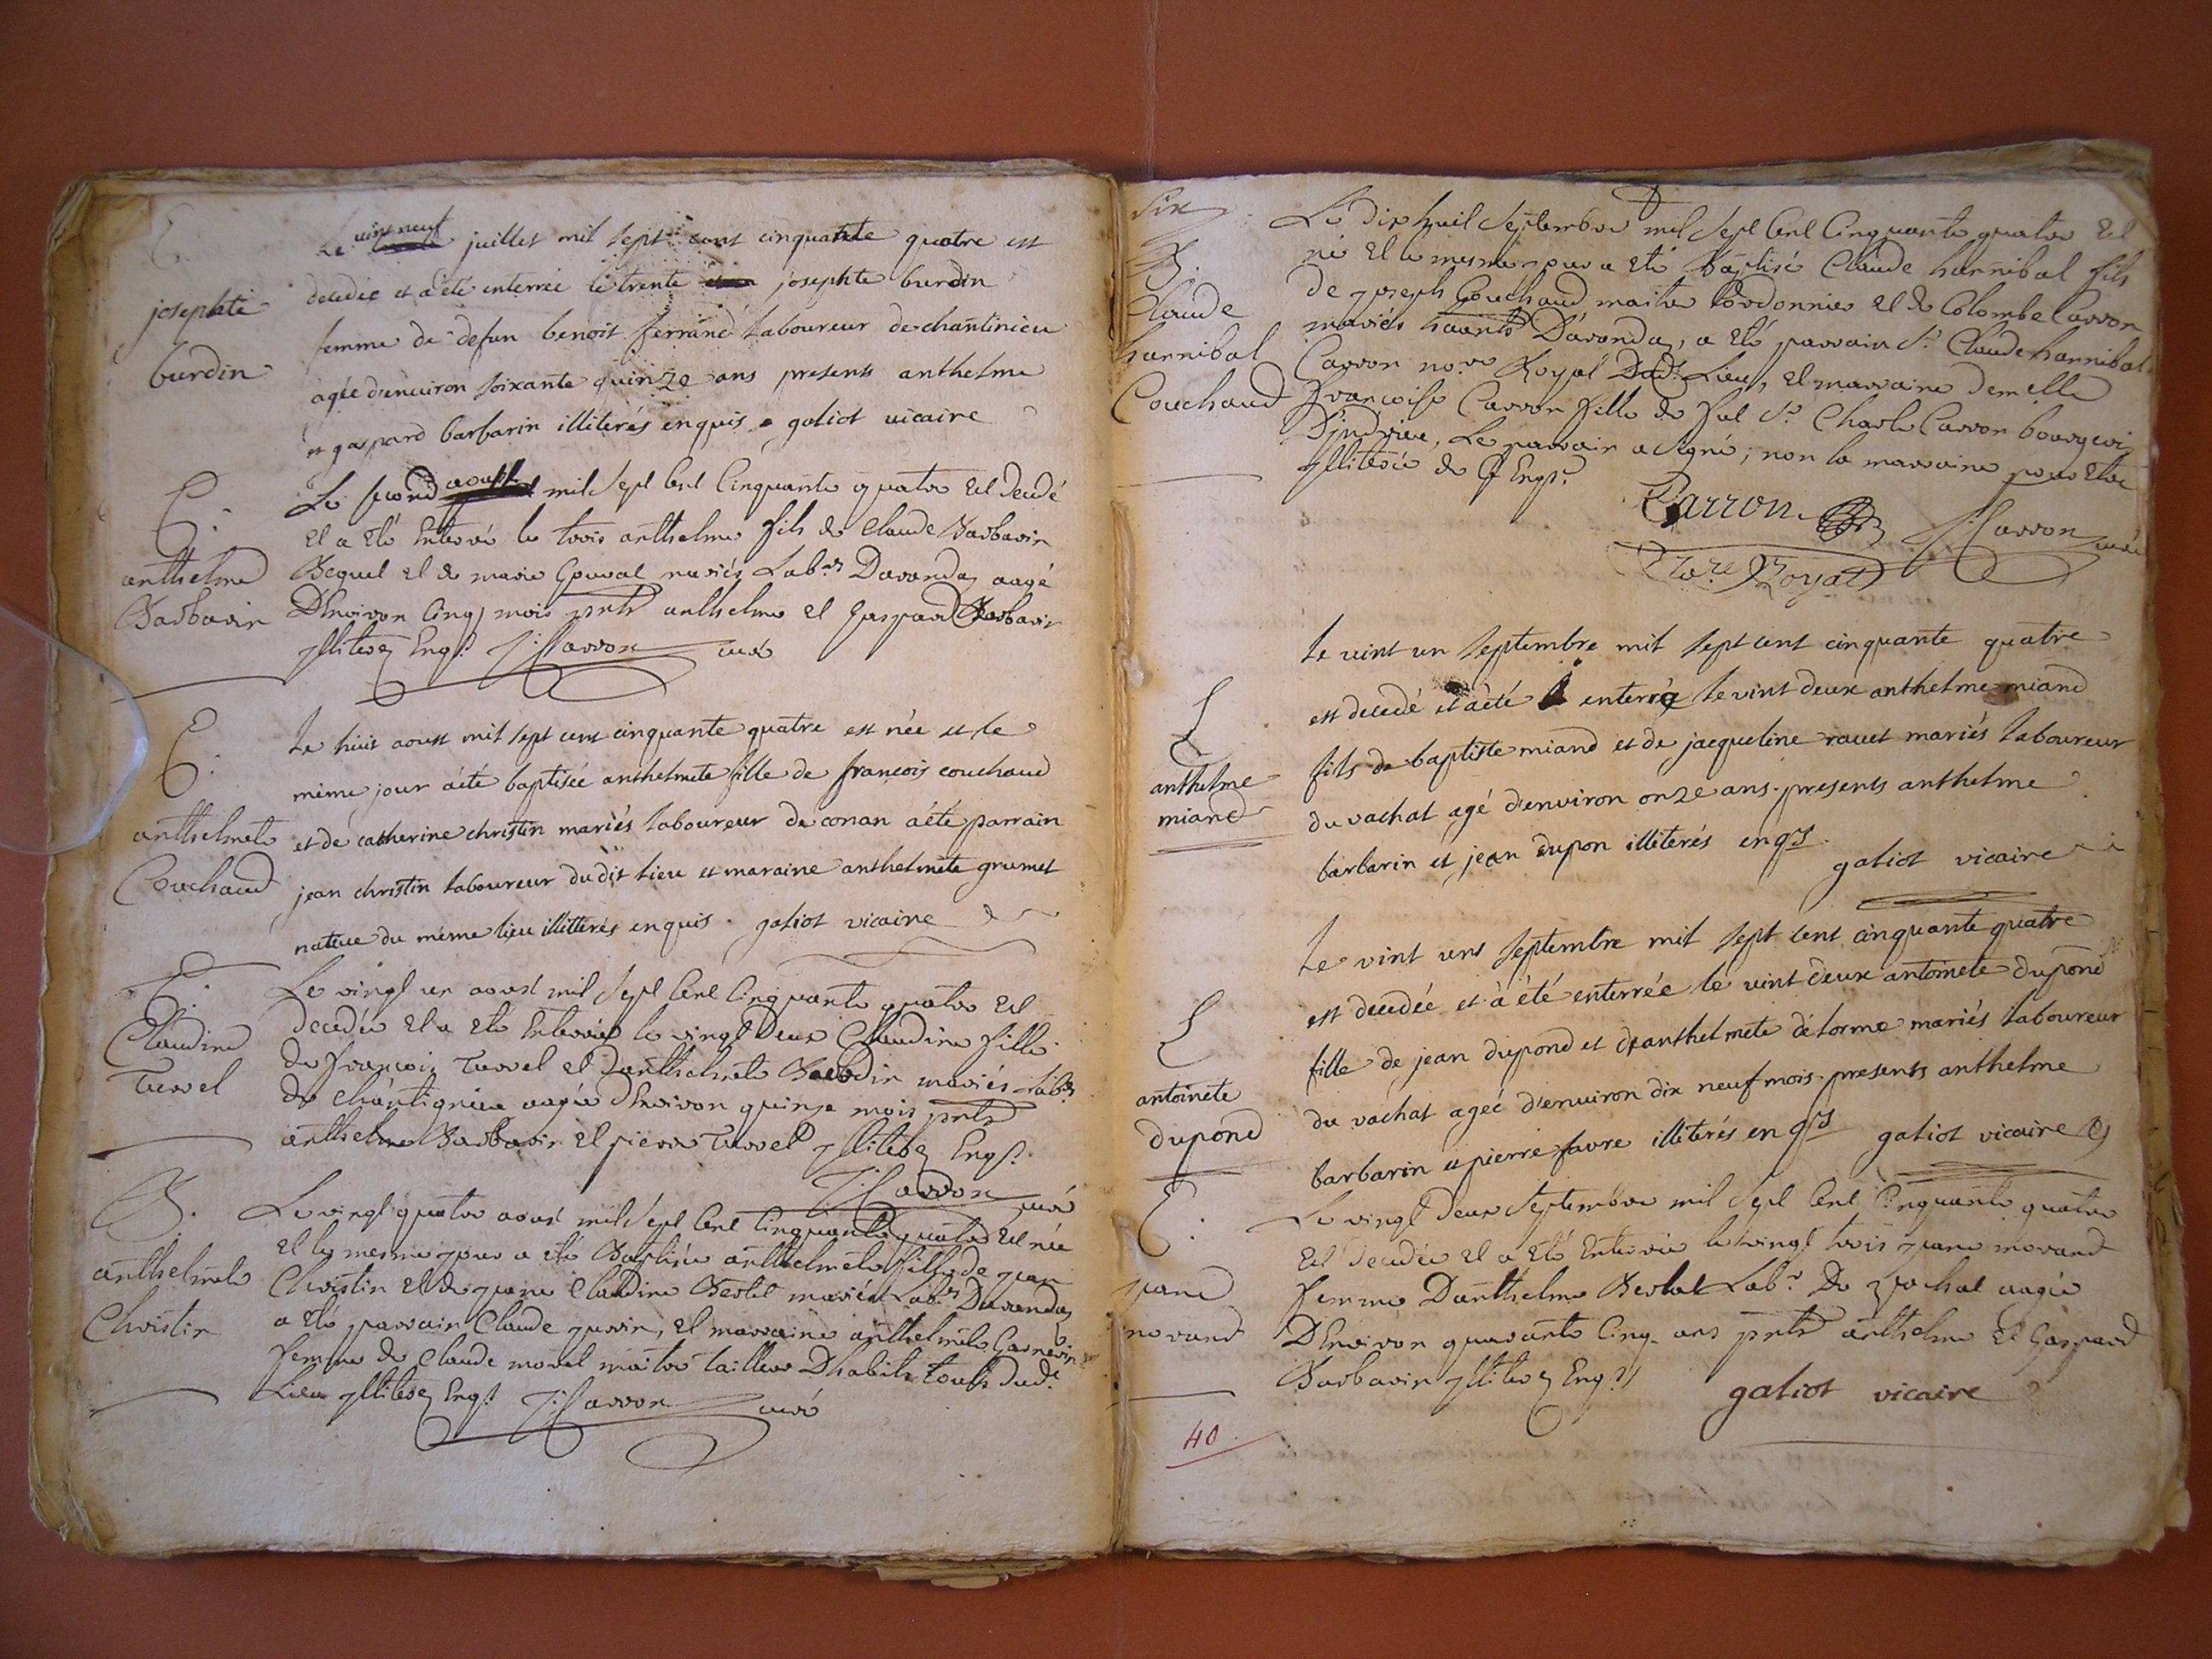 E.
josephte
burdin
Le vint neuf juillet mil sept cent cinquante quatre est
decedée et a été enterrée le trente josephte burdin
femme de defun benoit ferrand laboureur de chantinieu
agée d'environ soixante quinze ans presents anthelme
et gaspard barbarin illiterés enquis galiot vicaire
E.
anthelme
Barbarin
Le second aoust mil Sept Cent Cinquante quatre Est decedé
Et a Eté Enterré le trois anthelme fils de Claude Barbarin
Bequet Et de marie Gouvat mariés Labrs Davondaz aagé
DEnviron Cinq mois pnts anthelme Et gaspard Barbarin
jlliterez Enqs J: Carron curé
E.
anthelmete
Couchaud
Le huit aoust mil sept cent cinquante quatre est née et le
même jour aété baptisée anthelmete fille de francois couchaud
et de catherine christin mariés laboureur de conan aété parrain
jean christin laboureur dudit lieu et maraine anthelmete grumet
nateue du même lieu illitterés enquis. galiot vicaire
E.
Claudine
Turrel
Le vingt un aoust mil Sept Cent Cinquante quatre Est
decedée Et a Eté Enterrée le vingt Deux Claudine fille
de francois Turrel Et Danthelmete Burdin mariés Labrs
de Chantignieu aagée DEnviron quinze mois pnts
anthelme Barbarin Et pierre Turrel jlliterez Enqs.
J: Carron curé
B.
anthelmete
Christin
Le vingt quatre aoust mil Sept Cent Cinquante quatre Est née
Et le mesme jour a eté Baptisée anthelmete fille de jean
Christin Et de jeane Claudine Bertet mariés Labrs Davondaz
a Eté parrain Claude juvin, Et marraine anthelmete Garnerin
femme de Claude morel maitre tailleur Dhabits touts dudt
Lieu jlliterez Enqs J: Carron curé
Six
B.
Claude
hannibal
Couchaud
Le dix huit Septembre mil Sept Cent Cinquante quatre Est
né Et le mesme jour a Eté Baptisé Claude hannibal fils
de joseph Couchaud maitre Cordonnier Et de Colombe Carron
mariés hants Davondaz, a Eté parrain Sr Claude hannibal
Carron nore Royal Dudt Lieu, Et marraine demelle
francoise Carron fille de fut Sr Charle Carron bourgeois
Djndrieu, Le parrain a Signé, non la marraine pour Etre
jlliterée de ce Enqse
Carron J: Carron curé
Nore Royal
E
anthelme
miand
Le vint un septembre mil sept cent cinquante quatre
est decedé et aété enterré le vint deux anthelme miand
fils de baptiste miand et de jacqueline ravet mariés laboureur
du vachat agé d'environ onze ans presents anthelme
barbarin et jean dupon illiterés enqs
galiot vicaire
E
antoinete
dupond
Le vint uns septembre mil sept cent cinquante quatre
est decedée et à été enterrée le vint deux antoinete dupond
fille de jean dupond et d'anthelmete delorme mariés laboureur
du vachat ageé d'environ dix neuf mois presents anthelme
barbarin et pierre favre illiterés enqs galiot vicaire
E.
jeane
morand
Le vingt deux Septembre mil Sept Cent Cinquante quatre
Est decedée Et a Eté Enterrée le vingt trois jeane morand
femme Danthelme Berlat Labr. aagée
DEnviron quarante Cinq ans pnts anthelme Et Gaspard
Barbarin jlliterez Enqs
galiot vicaire
40